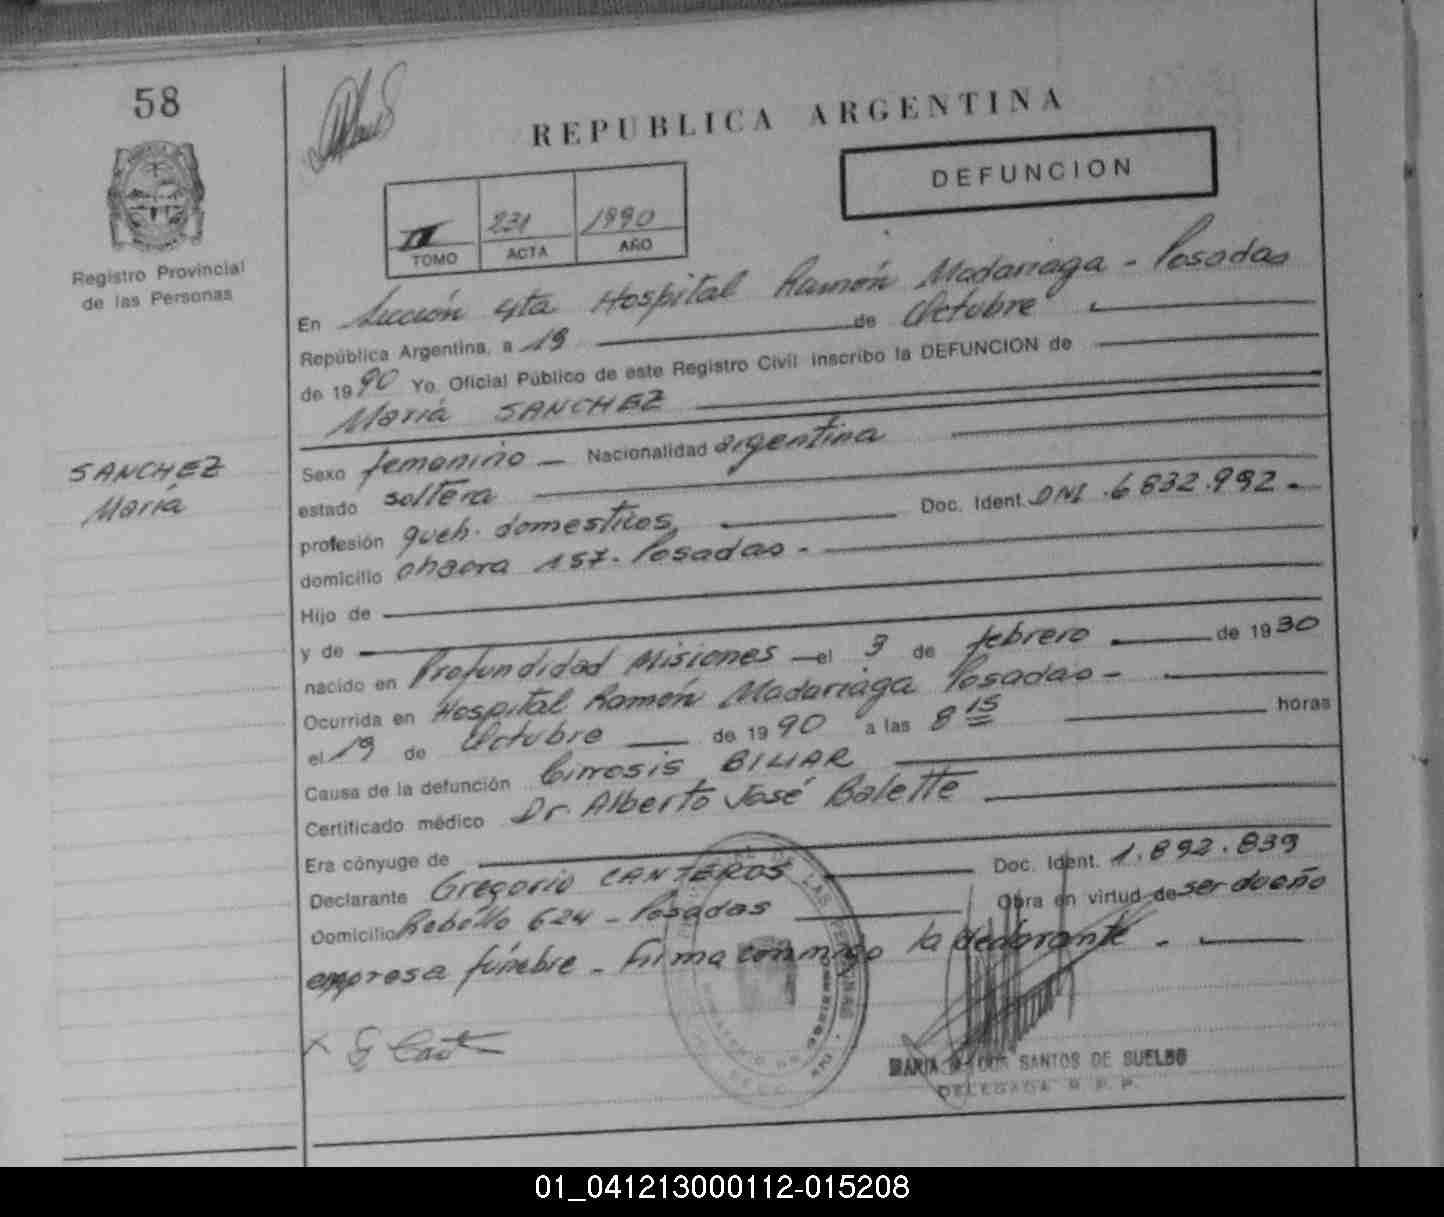 58
REPUBLICA ARGENTINA
DEFUNCION
II 231 1990
TOMO ACTA AÑO
Registro Provincial
de las Personas
En Sección 4ta Hospital Ramón Madariaga - Posadas
República Argentina, a 19 de Octubre
de 1990 Yo, Oficial Público de este Registro Civil inscribo la DEFUNCION de
María SANCHEZ
SANCHEZ
María
Sexo femenino Nacionalidad argentina
estado soltera
profesión queh. domesticos Doc. Ident. DNI .6832.992.-
domicilio chacra 157. Posadas -
Hijo de
y de
nacido en Profundidad Misiones el 3 de febrero de 1930
Ocurrida en Hospital Ramón Madariaga Posadas -
el 19 de Octubre de 1990 a las 8 15 horas
Causa de la defunción Cirrosis BILIAR
Certificado médico Dr. Alberto José Balette
Era cónyuge de
Declarante Gregorio CANTEROS Doc. Ident. 1.892.839
Domicilio Rebollo 624 - Posadas Obra en virtud de ser dueño
empresa fúnebre - Firma conmigo la declarante -
DE LAS PERSONAS
SANTOS DE SUELDO
DELEGADA R. P. P.
01_041213000112-015208